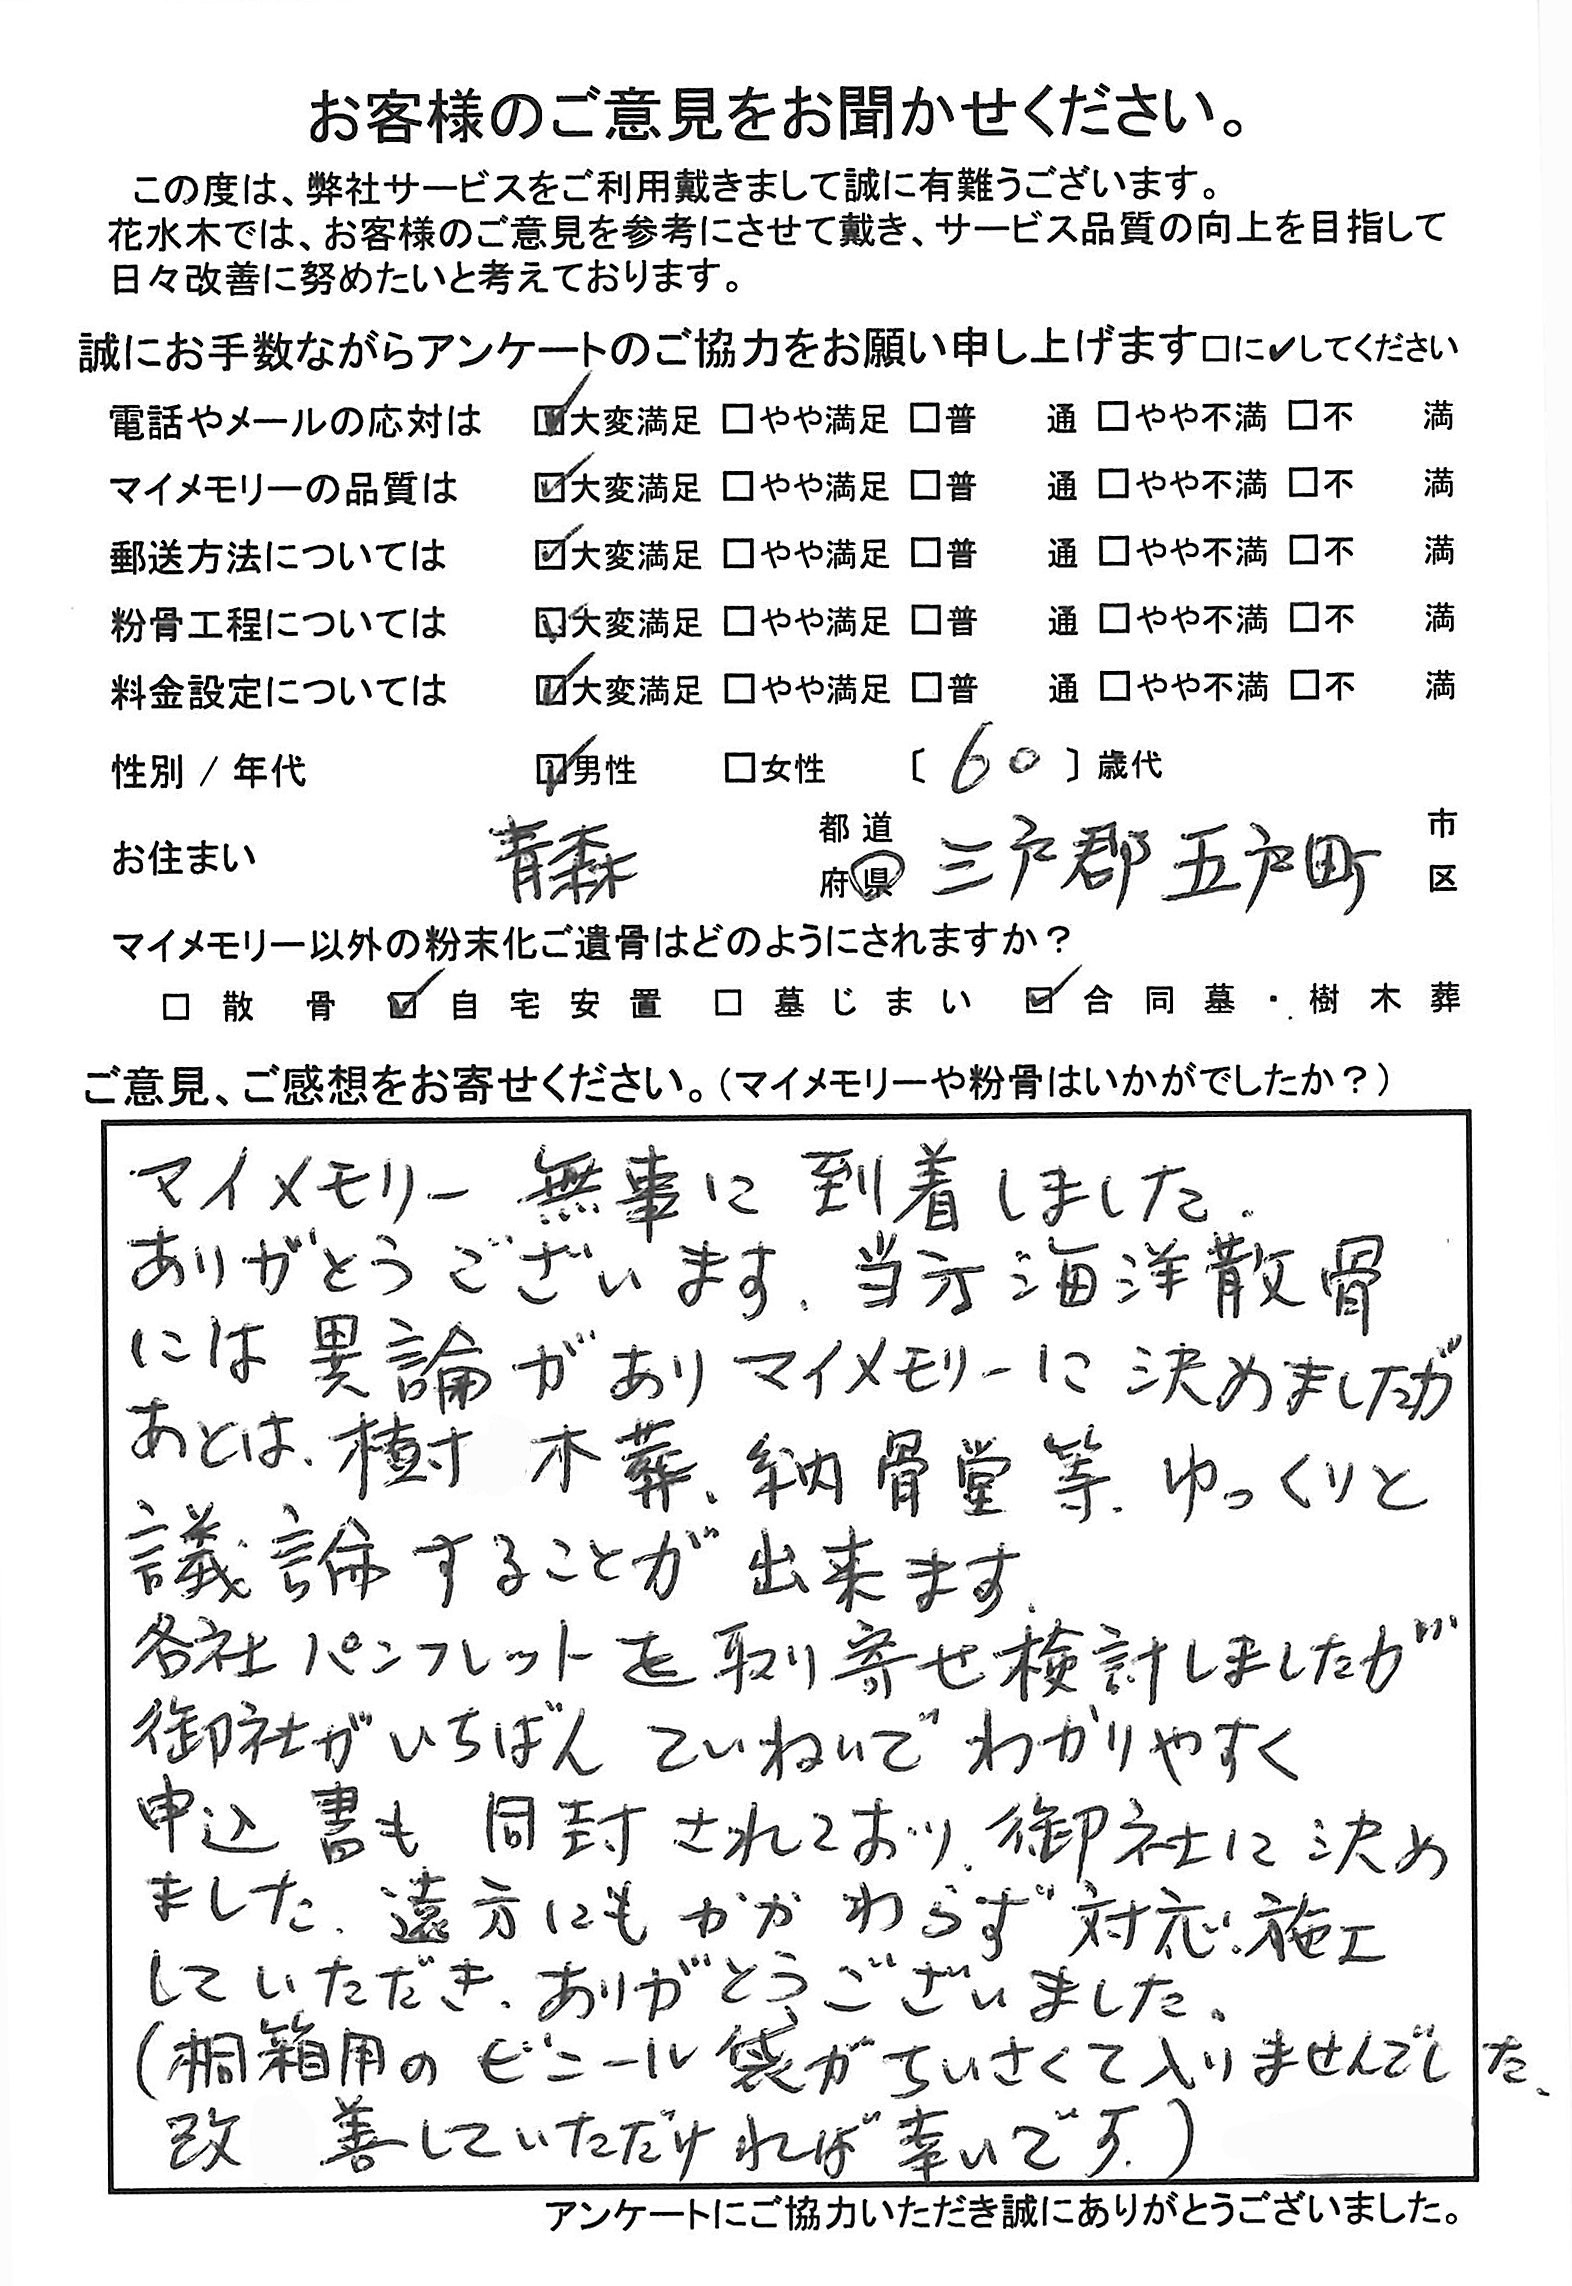 お客様のご意見をお聞かせください。
この度は、弊社サービスをご利用戴きまして誠に有難うございます。
花水木では、お客様のご意見を参考にさせて戴き、サービス品質の向上を目指して
日々改善に努めたいと考えております。
誠にお手数ながらアンケートのご協力をお願い申し上げます□に✔してください
電話やメールの応対は ☑大変満足 □やや満足 □普 通 □やや不満 □不 満
マイメモリーの品質は ☑大変満足 □やや満足 □普 通 □やや不満 □不 満
郵送方法については ☑大変満足 □やや満足 □普 通 □やや不満 □不 満
粉骨工程については ☑大変満足 □やや満足 □普 通 □やや不満 □不 満
料金設定については ☑大変満足 □やや満足 □普 通 □やや不満 □不 満
性別 / 年代 ☑男性 □女性 〔 60 〕歳代
お住まい 青森 都道府県 三戸郡五戸町 市区
マイメモリー以外の粉末化ご遺骨はどのようにされますか？
□ 散骨 ☑ 自宅安置 □ 墓じまい ☑ 合同墓・樹木葬
ご意見、ご感想をお寄せください。（マイメモリーや粉骨はいかがでしたか？）
マイメモリー 無事に到着しました。
ありがとうございます。当方海洋散骨
には異論がありマイメモリーに決めましたが
あとは、樹木葬、納骨堂等、ゆっくりと
議論することが出来ます。
各社パンフレットを取り寄せ検討しましたが
御社がいちばんていねいでわかりやすく
申込書も同封されており、御社に決め
ました。遠方にもかかわらず対応、施工
していただき、ありがとうございました。
（桐箱用のビニール袋がちいさくて入りませんでした、
改善していただければ幸いです。）
アンケートにご協力いただき誠にありがとうございました。